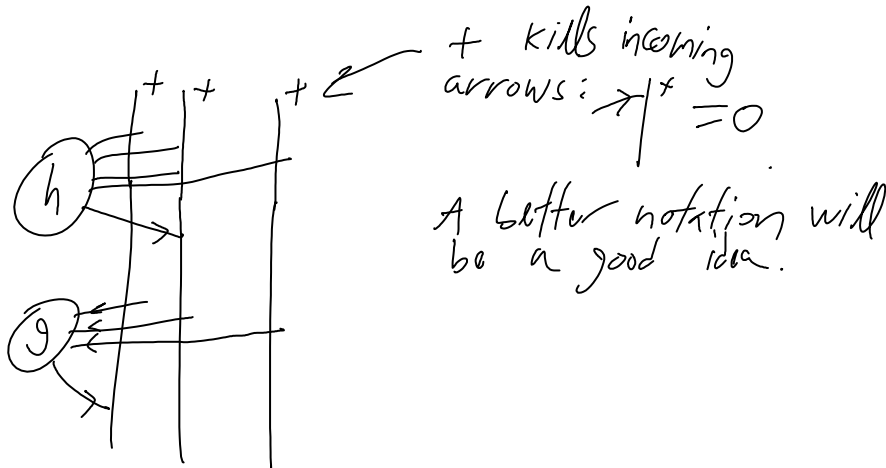 + kills incoming
arrows: + = 0
+ + +
h
A better notation will
be a good idea.
g